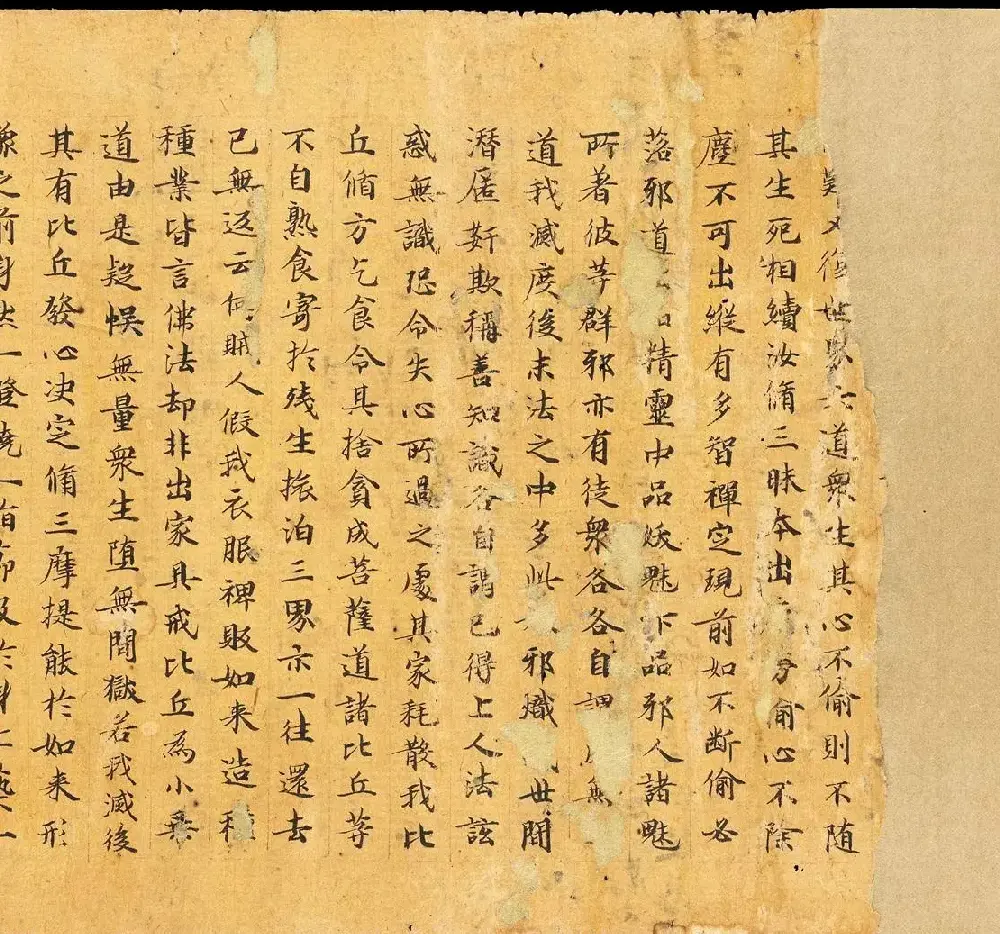 難又復世界六道衆生其心不偷則不随
其生死相續汝脩三昧本出勞偷心不除
塵不可出縱有多智禪定現前如不断偷必
落邪道精靈中品妖魅下品邪人諸魅
所著彼等群邪亦有徒衆各各自謂無
道我滅度後末法之中多此邪熾世間
潛匿姧欺稱善知識各自謂已得上人法詃
惑無識恐令失心所過之處其家秏散我比
丘脩方乞食令其捨貪成菩薩道諸比丘等
不自熟食寄於残生旅泊三界示一往還去
已無返云何賊人假我衣服裨販如来造種
種業皆言佛法却非出家具戒比丘為小乗
道由是疑悮無量衆生堕無間獄若我滅後
其有比丘發心决定脩三摩提能於如来形
像之前身然一燈燒一指節及於身上爇一